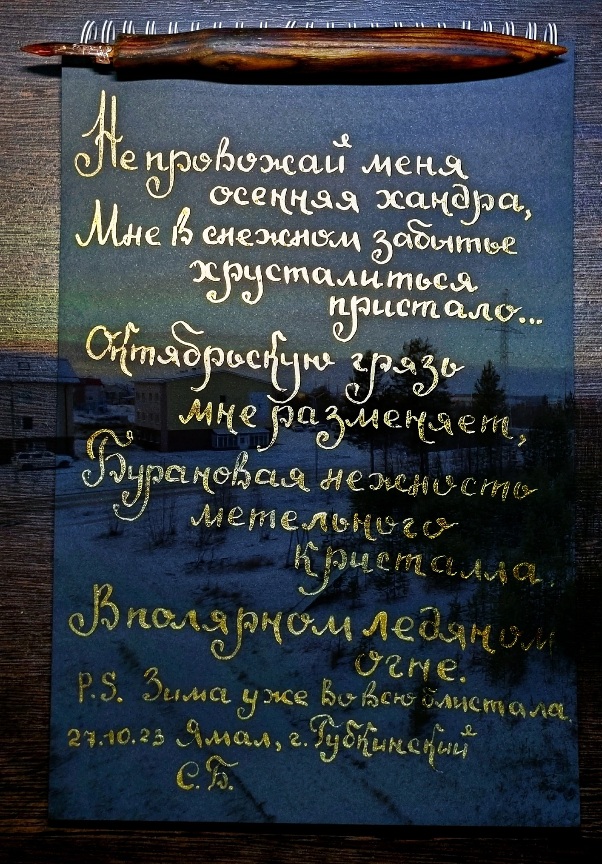 Не провожай меня
осенняя хандра,
Мне в снежном забытье
хрусталиться
пристало...
Октябрьскую грязь
мне разменяет,
Бурановая нежность
метельного
кристалла
В полярном ледяном
огне.
P.S. Зима уже вовсю блистала.
27.10.23 Ямал, г. Губкинский
С.Б.